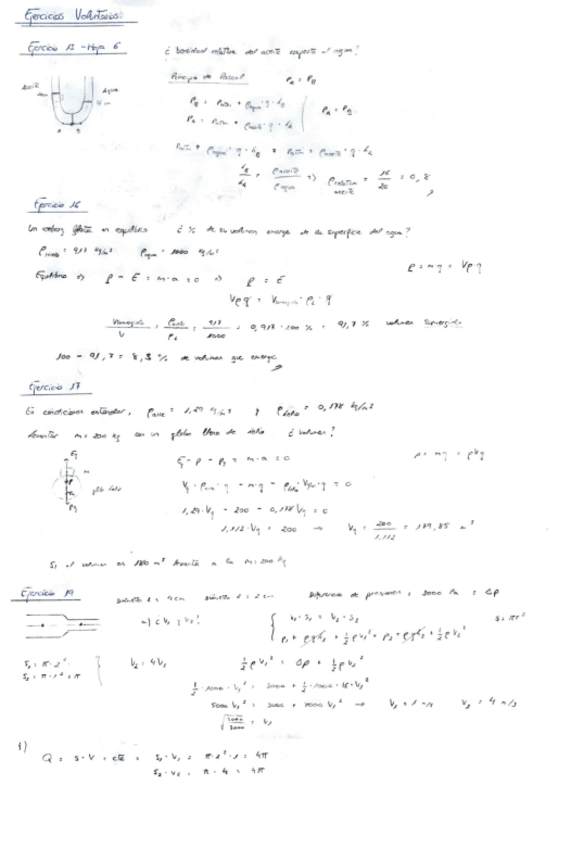 Ejercicios Voluntarios:
Ejercicio 13 - Hoja 6
¿ Densidad relativa del aceite respecto al agua?
Principio de Pascal P_A = P_B
Aceite
Agua
P_B = P_atm + ρ_agua · g · h_B
P_A = P_atm + ρ_aceite · g · h_A
P_A = P_B
P_atm + ρ_agua · g · h_B = P_atm + ρ_aceite · g · h_A
h_B / h_A = ρ_aceite / ρ_agua => ρ_relativa aceite = 16 / 20 = 0,8
Ejercicio 16
Un iceberg flota en equilibrio ¿ % de su volumen emerge de la superficie del agua?
ρ_hielo = 917 kg/m³ ρ_agua = 1000 kg/m³
Equilibrio => P - E = m · a = 0 => P = E P = m g = V ρ g
V ρ g = V_sumergido · ρ_L · g
V_sumergido / V = ρ_hielo / ρ_L = 917 / 1000 = 0,917 · 100 % = 91,7 % volumen sumergido
100 - 91,7 = 8,3 % de volumen que emerge
Ejercicio 17
En condiciones estándar, ρ_aire = 1,29 kg/m³ y ρ_helio = 0,178 kg/m³
Levantar m = 200 kg con un globo lleno de helio ¿ volumen?
E - P - P_g = m · a = 0
globo helio
V_g · ρ_aire · g - m · g - ρ_helio · V_g · g = 0
1,29 · V_g - 200 - 0,178 V_g = 0
1,112 · V_g = 200 → V_g = 200 / 1,112 = 179,85 m³
Si el volumen es 180 m³ levanta a la m = 200 kg
Ejercicio 19
Diámetro 1 = 4 cm Diámetro 2 = 2 cm Diferencia de presiones = Δp
a) ¿ V₁ y V₂?
V₁ · S₁ = V₂ · S₂ S = π r²
S₁ = π · 2²
S₂ = π · 1² = π
V₂ = 4V₁
½ ρ V₁² = Δp + ½ ρ V₂²
V₂ = 4 m/s
Q = S · V = cte = S₁ · V₁ = π · 2² · 1 = 4π
S₂ · V₂ = π · 4 = 4π